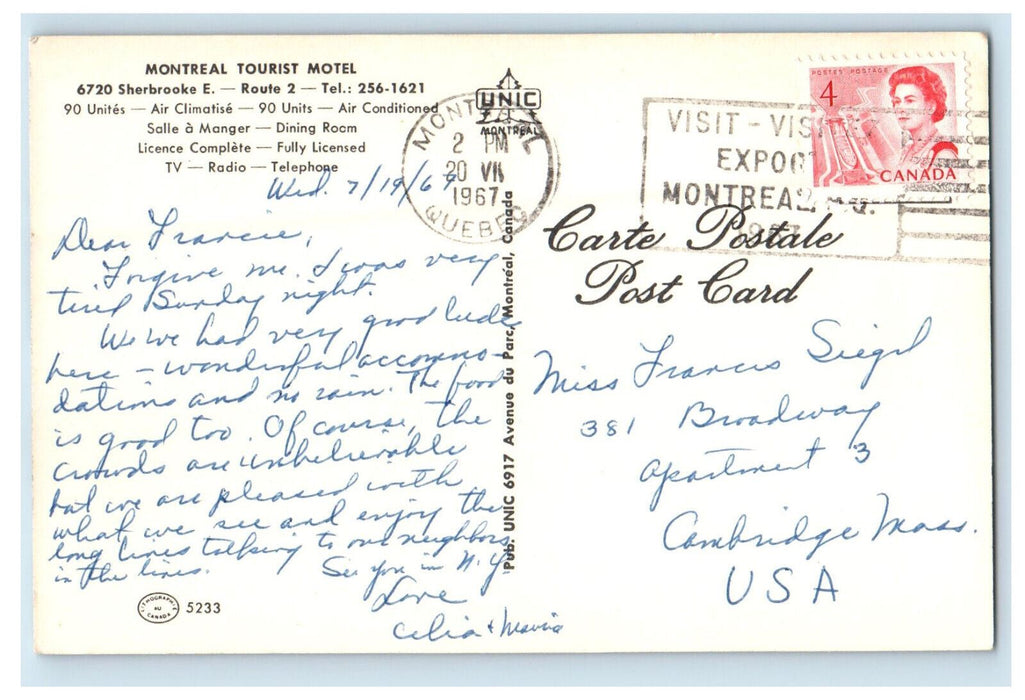 MONTREAL TOURIST MOTEL
6720 Sherbrooke E. — Route 2 — Tel.: 256-1621
90 Unités — Air Climatisé — 90 Units — Air Conditioned
Salle à Manger — Dining Room
Licence Complète — Fully Licensed
TV — Radio — Telephone
Wed. 7/19/67
Dear Francie,
Forgive me. I was very
tired Sunday night.
We've had very good luck
here - wonderful accommo-
dations and no rain. The food
is good too. Of course, the
crowds are unbelievable
but we are pleased with
what we see and enjoy the
long lines talking to our neighbors
in the lines.
See you in N.Y.
Love
Celia + Marvin
LITHOGRAPHIE AU CANADA
5233
UNIC
MONTREAL
Pub. UNIC 6917 Avenue du Parc, Montréal, Canada
MONTREAL
2 PM
20 VII
1967
QUEBEC
VISIT - VISITEZ
EXPO67
MONTREAL, P.Q.
1967
POSTES POSTAGE
4
CANADA
Carte Postale
Post Card
Miss Francis Siegel
381 Broadway
Apartment 3
Cambridge Mass.
USA